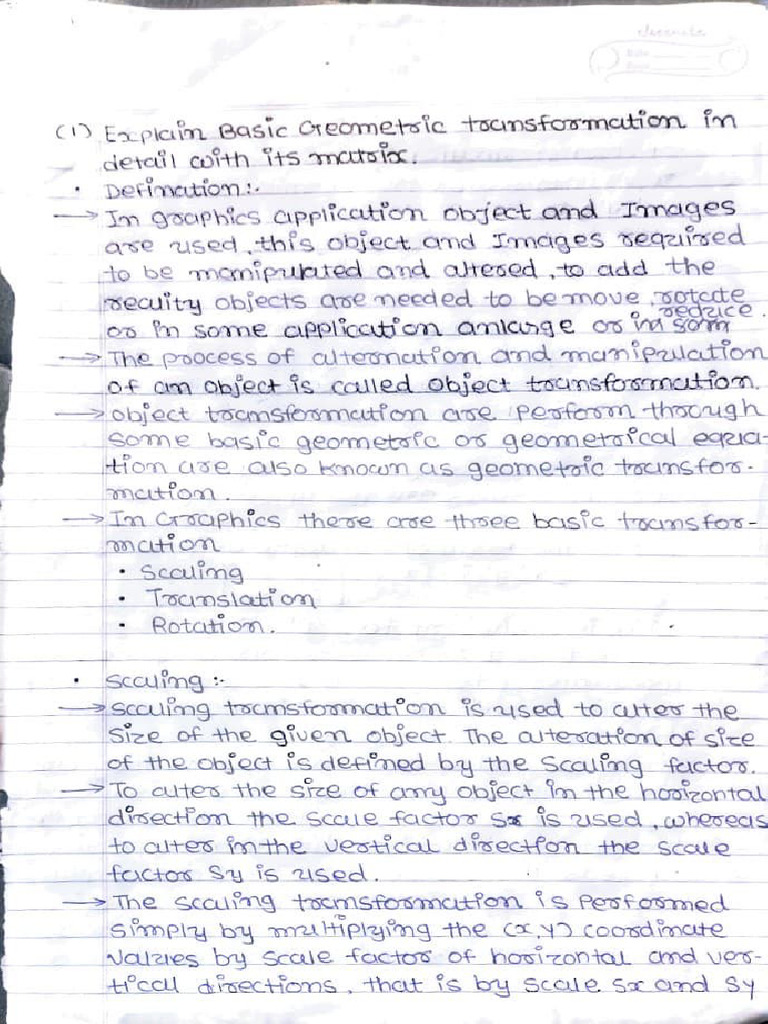 (1) Explain Basic Geometric transformation in
detail with its matrix.
• Defination:-
→ In graphics application object and Images
are used, this object and Images required
to be manipulated and altered, to add the
recuity objects are needed to be move, rotate
reduce.
or in some application anlarge or in som
→ The process of alternation and manipulation
of an object is called object transformation.
→ object transformation are perform through
some basic geometric or geometrical equa-
tion are also known as geometric transfor-
mation.
→ In Graphics there are three basic transfor-
mation
• Scaling
• Translation
• Rotation.
• scaling :-
→ scaling transformation is used to alter the
size of the given object. The alteration of size
of the object is defined by the scaling factor.
→ To alter the size of any object in the horizontal
direction the scale factor sx is used, whereas
to alter in the vertical direction the scale
factor Sy is used.
→ The scaling transformation is performed
simply by multiplying the (x,y) coordinate
values by scale factor of horizontal and ver-
tical directions, that is by scale sx and sy